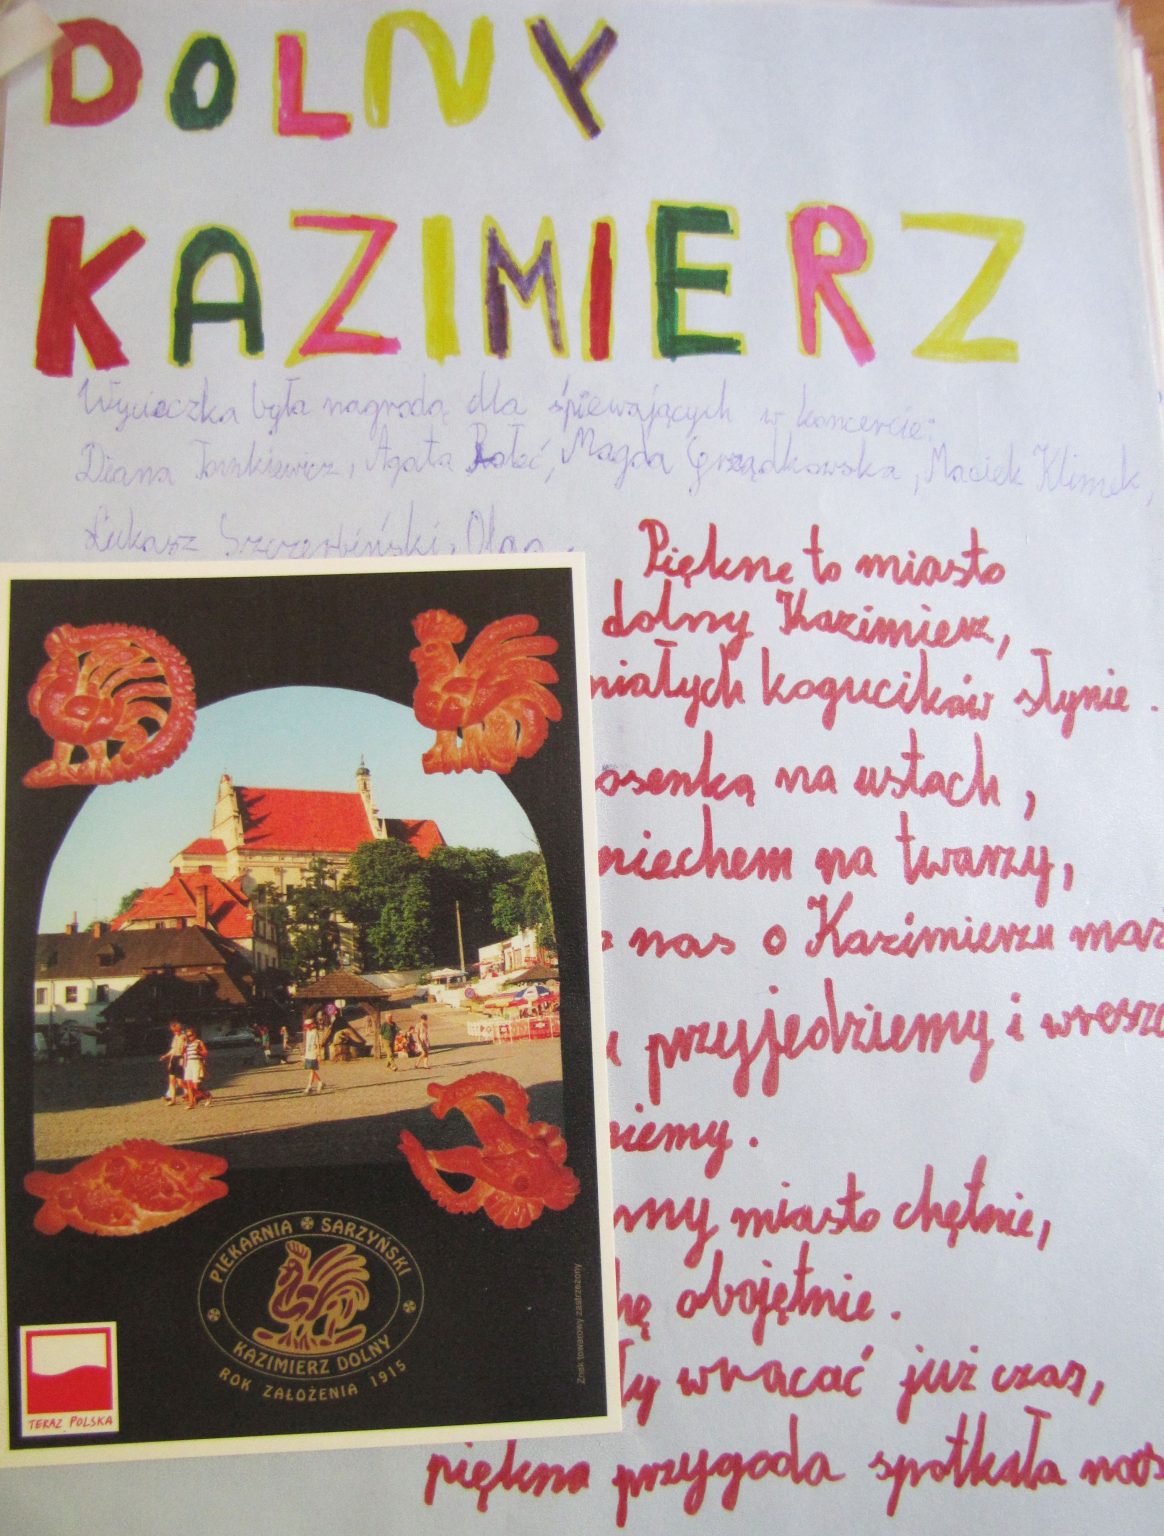 DOLNY
KAZIMIERZ
Wycieczka była nagrodą dla śpiewających w koncercie:
Diana Agata Magda Grządkowska, Maciek Klimek,
Łukasz Szczerbiński, Olga
Piękne to miasto
dolny Kazimierz,
małych kogucików słynie.
osenką na ustach,
miechem na twarzy,
z nas o Kazimierzu marz
przyjedziemy i wreszc
niemy.
my miasto chętnie,
hę obojętnie.
ły wracać już czas,
piękna przygoda spotkała nas
PIEKARNIA SARZYŃSKI
KAZIMIERZ DOLNY
ROK ZAŁOŻENIA 1915
Znak towarowy zastrzeżony
TERAZ POLSKA